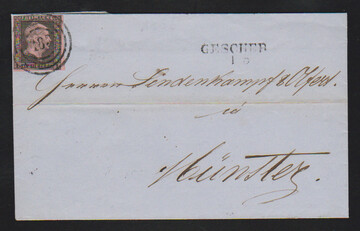 GESCHER
1 5
Herrren Lindenkampf & Olfers.
in
Münster.